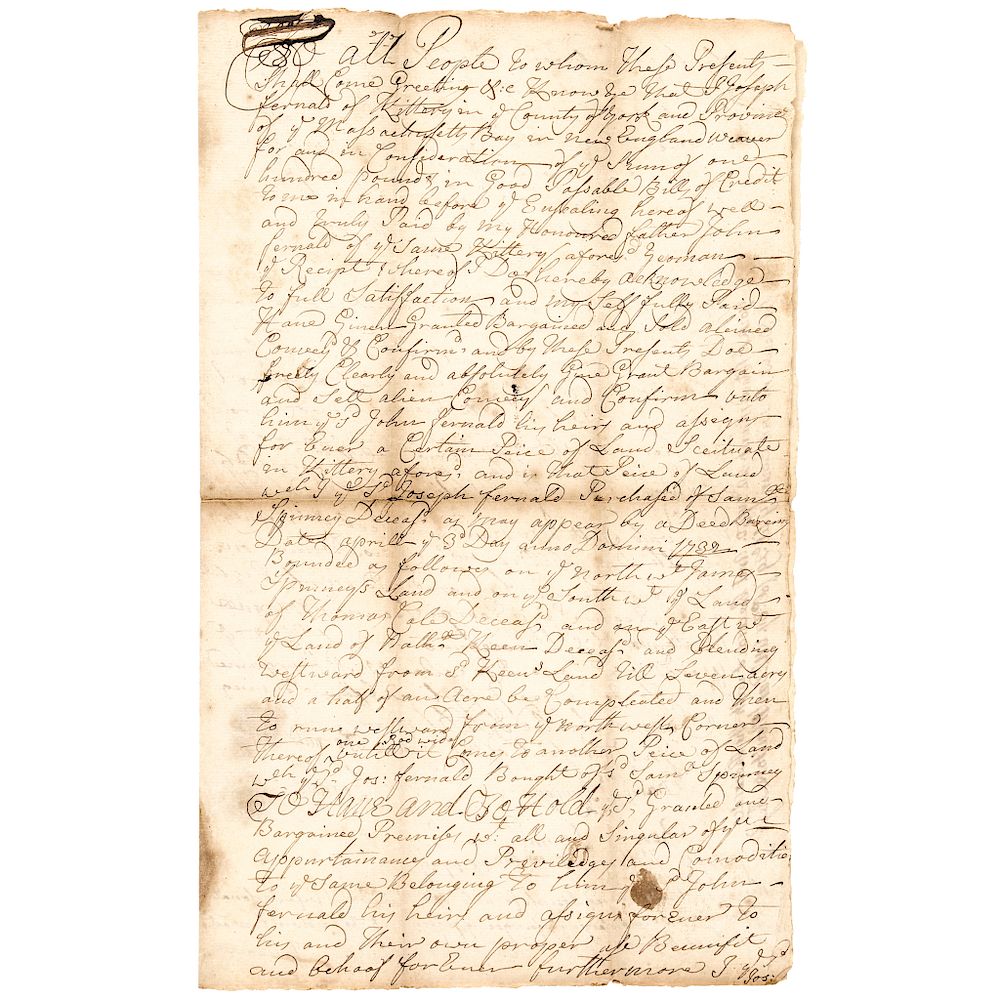 To all People to whom These Presents
Shall Come Greeting &c Know ye That I Joseph
fernald of Kittery in ye County of York and Province
of ye Massachusetts Bay in new England Weaver
for and in Consideration of ye Sum of one
hundred pounds in Good Passable Bills of Credit
to me in hand before ye Ensealing hereof well
and truly Paid by my Honoured father John
fernald of ye Same Kittery aforesd Yeoman
ye Recipt whereof I Doe hereby acknowledge
to full Sattisfaction and my Self fully Paid
Have Given Granted Bargained and Sold aliened
Conveyd & Confirmd and by these Presents Doe
freely Clearly and absolutely Give Grant Bargain
and Sell alien Convey and Confirm unto
him ye sd John fernald his heirs and assigns
for Ever a Certain Peice of Land Sceituate
in Kittery aforesd and is that Peice of Land
wch I ye sd Joseph fernald Purchased of Samll
Spinney Deceasd as may appear by a Deed Baring
Date april ye 3d Day anno Domini 1732
Bounded as follows on ye North wth James
Spinneys Land and on ye South wth ye Land
of Thomas Cole Deceasd and on ye East wth
ye Land of Nathll Keen Deceasd and Extending
westward from sd Keens Land till Seven acres
and a half of an Acre be Compleated and then
to run westward from ye north west Corner
one Rod wide
thereof untill it Comes to another Peice of Land
wch ye sd Jos: fernald Bought of sd Samll Spinney
To Have and To Hold ye sd Granted and
Bargained Premises wt all and Singular of ye
appurtainances and Priviledges and Comodities
to ye Same Belonging to him ye sd John
fernald his heirs and assigns for Ever to
his and their own proper use Bennifit
and behoof for Ever furthermore I ye sd
Jos: